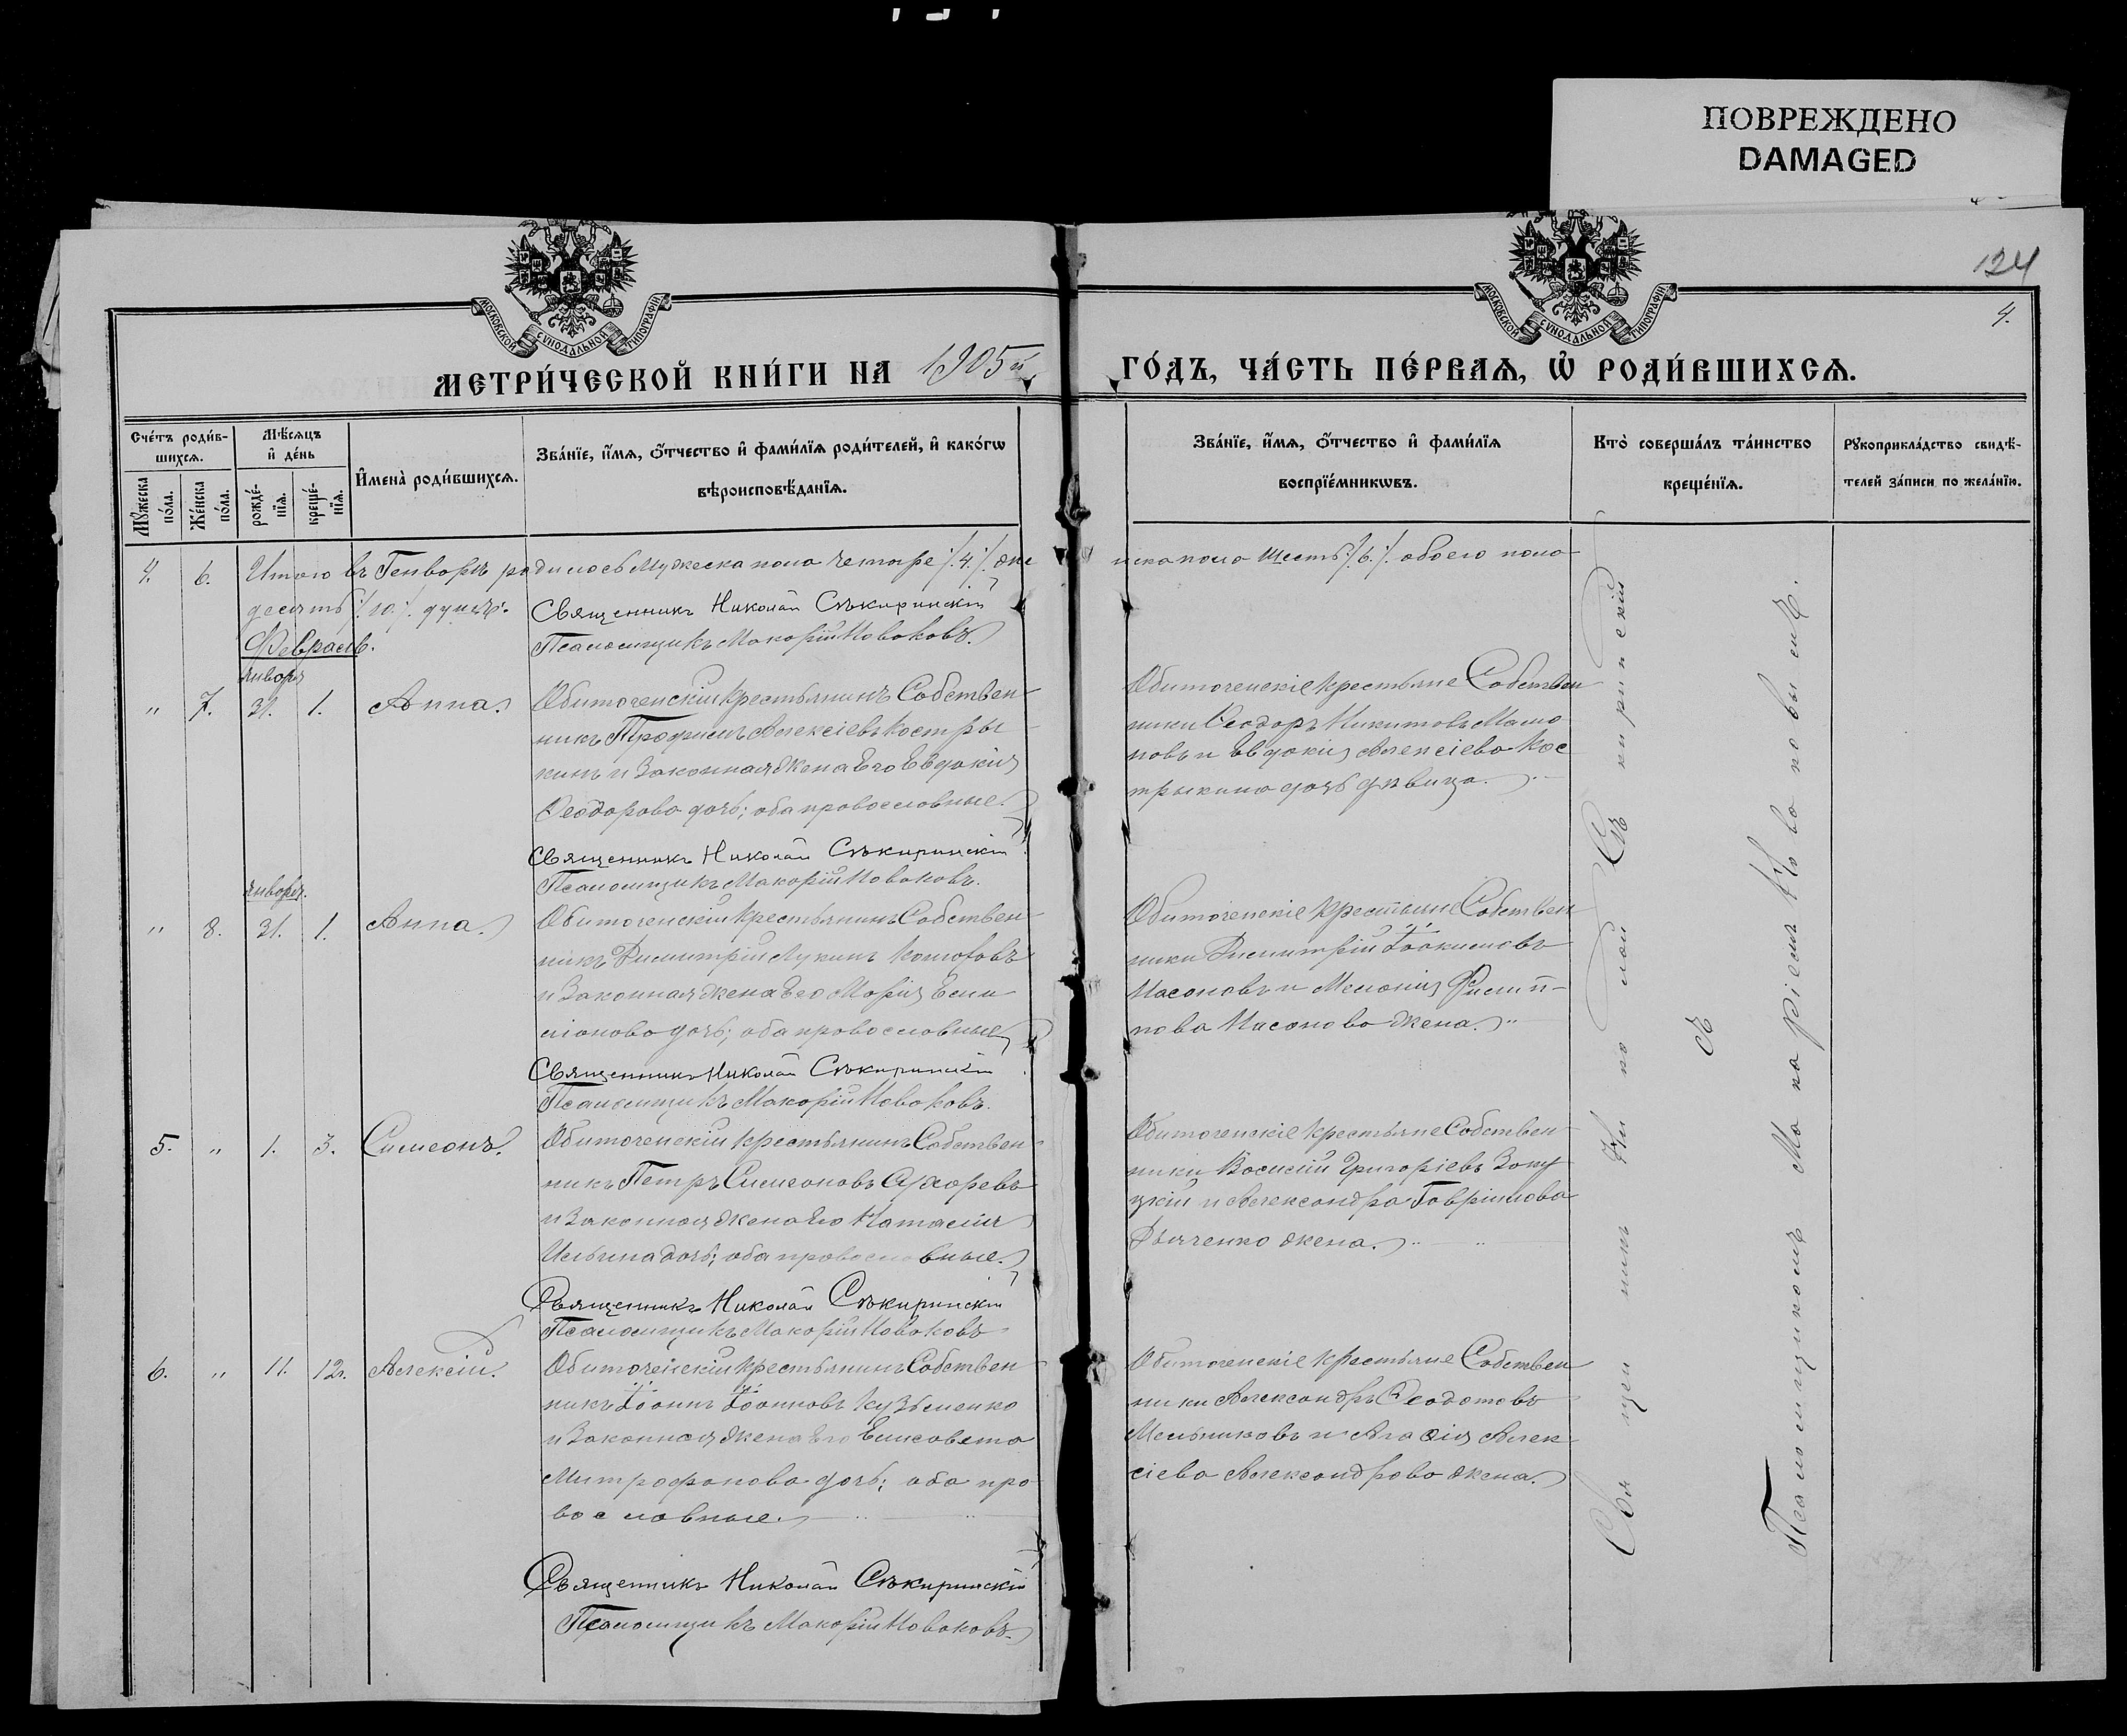 ПОВРЕЖДЕНО
DAMAGED
124
4.
МОСКОВСКОЙ СУНОДАЛЬНОЙ ТИПОГРАФІИ
МОСКОВСКОЙ СУНОДАЛЬНОЙ ТИПОГРАФІИ
МЕТРИ́ЧЕСКОЙ КНИ́ГИ НА 1905й
ГО́ДЪ, ЧА́СТЬ ПЕ́РВАѦ, Ѡ҆ РОДИ́ВШИХСѦ.
Сче́тъ роди́в-
шихсѧ.
Мꙋ́жеска по́ла.
Же́нска по́ла.
Мѣ́сѧцъ
и҆ де́нь
рожде́-
нїѧ.
креще́-
нїѧ.
И҆мена̀ роди́вшихсѧ.
Зва́нїе, и҆́мѧ, ѻ҆́тчество и҆ фами́лїѧ роди́телей, и҆ како́гѡ
вѣроисповѣ́данїѧ.
Зва́нїе, и҆́мѧ, ѻ҆́тчество и҆ фами́лїѧ
воспрїе́мникѡвъ.
Кто̀ соверша́лъ та́инство
креще́нїѧ.
Рꙋкоприкла́дство свидѣ́-
телей за́писи по жела́нїю.
4. 6. Итого въ Генварѣ родилось Мужеска пола четыре /.4./. жен
ска пола Шесть /.6./. обоего пола
десять /.10./. душъ.
Священникъ Николай Сѣкиринскій
Февраль.
Псаломщикъ Макарій Новаковъ.
января
" 7. 31. 1. Анна.
Обиточенскій крестьянинъ Собствен
никъ Трофимъ Алексіевъ Костры
кинъ и Законная Жена Его Евдокія
Ѳеодорова дочь; оба православные.
Обиточенскіе крестьяне Собствен
ники Ѳеодоръ Никитовъ Мамо
новъ и Евдокія Алексіева Кос
трыкина дочь дѣвица.
Священникъ Николай Сѣкиринскій
Псаломщикъ Макарій Новаковъ.
января.
" 8. 31. 1. Анна.
Обиточенскій крестьянинъ Собствен
никъ Димитрій Лукинъ
и Законная Жена Его Марія Еми
ліанова дочь; оба православные
Обиточенскіе крестьяне Собствен
ники Димитрій Іоакимовъ
Насоновъ и Меланія Филип-
пова Насонова жена."
Священникъ Николай Сѣкиринскій
Псаломщикъ Макарій Новаковъ.
5. " 1. 3. Симеонъ.
Обиточенскій крестьянинъ Собствен
никъ Петръ Симеоновъ
и Законная Жена Его Наталія
Ильина дочь; оба православные.
Обиточенскіе крестьяне Собствен
ники Василій Григоріевъ
и Александра Гавріилова
Дьяченко жена.
Священникъ Николай Сѣкиринскій
Псаломщикъ Макарій Новаковъ
6. " 11. 12. Алексій.
Обиточенскій крестьянинъ Собствен
никъ Іоаннъ Іоанновъ Кузьменко
и Законная Жена Его Елисавета
Митрофанова дочь; оба пра
вославные.
Обиточенскіе крестьяне Собствен
ники Александръ Ѳеодотовъ
Мельниковъ и Агаѳія Алек
сіева Александрова жена.
Священникъ Николай Сѣкиринскій
Псаломщикъ Макарій Новаковъ.
Священникъ Николай Сѣкиринскій
съ
Псаломщикомъ Макаріемъ Новаковымъ.